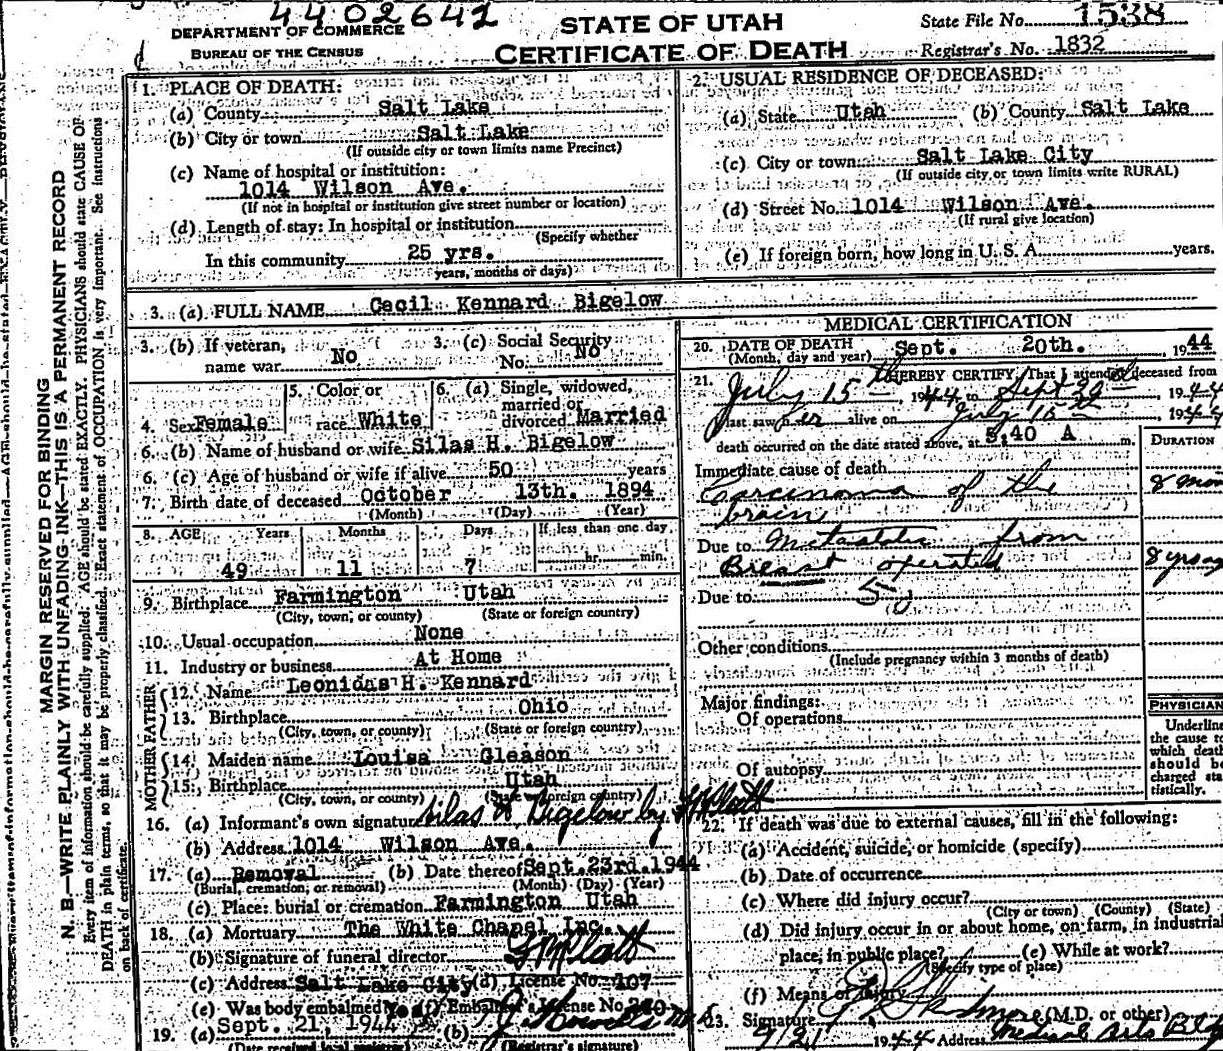 4402641
DEPARTMENT OF COMMERCE
BUREAU OF THE CENSUS
STATE OF UTAH
CERTIFICATE OF DEATH
State File No. 1538
Registrar's No. 1832
MARGIN RESERVED FOR BINDING
N. B.—WRITE PLAINLY WITH UNFADING INK—THIS IS A PERMANENT RECORD
Every item of information should be carefully supplied. AGE should be stated EXACTLY. PHYSICIANS should state CAUSE OF
DEATH in plain terms, so that it may be properly classified. Exact statement of OCCUPATION is very important. See instructions
on back of certificate.
1. PLACE OF DEATH:
(a) County Salt Lake
(b) City or town Salt Lake
(If outside city or town limits name Precinct)
(c) Name of hospital or institution:
1014 Wilson Ave.
(If not in hospital or institution give street number or location)
(d) Length of stay: In hospital or institution
(Specify whether
In this community 25 yrs.
years, months or days)
2. USUAL RESIDENCE OF DECEASED:
(a) State Utah (b) County Salt Lake
(c) City or town Salt Lake City
(If outside city or town limits write RURAL)
(d) Street No. 1014 Wilson Ave.
(If rural give location)
(e) If foreign born, how long in U. S. A. years.
3. (a) FULL NAME Cecil Kennard Bigelow
3. (b) If veteran, name war No
3. (c) Social Security No. No
4. Sex Female
5. Color or race White
6. (a) Single, widowed, married or divorced Married
6. (b) Name of husband or wife Silas H. Bigelow
6. (c) Age of husband or wife if alive 50 years
7. Birth date of deceased October 13th. 1894
(Month) (Day) (Year)
8. AGE Years Months Days If less than one day
49 11 7 hr. min.
9. Birthplace Farmington Utah
(City, town, or county) (State or foreign country)
10. Usual occupation None
11. Industry or business At Home
FATHER
12. Name Leonidas H. Kennard
13. Birthplace Ohio
(City, town, or county) (State or foreign country)
MOTHER
14. Maiden name Louisa Gleason
15. Birthplace Utah
(City, town, or county) (State or foreign country)
16. (a) Informant's own signature Silas H Bigelow by
(b) Address 1014 Wilson Ave.
17. (a) Removal (b) Date thereof Sept. 23rd. 1944
(Burial, cremation, or removal) (Month) (Day) (Year)
(c) Place: burial or cremation Farmington Utah
18. (a) Mortuary The White Chapel Inc.
(b) Signature of funeral director
(c) Address Salt Lake City (d) License No. 107
(e) Was body embalmed Yes (f) Embalmer's License No.
19. (a) Sept. 21, 1944 (b)
(Date received local registrar) (Registrar's signature)
MEDICAL CERTIFICATION
20. DATE OF DEATH
(Month, day and year) Sept. 20th. , 1944
21. I HEREBY CERTIFY, That I attended deceased from
July 15th 1944 to Sept 20 , 1944
I last saw her alive on July 15 1944
death occurred on the date stated above, at 5:40 A m.
DURATION
Immediate cause of death
Carcinoma of the 8 mon
brain
Due to Metastatic from
Breast operated 8 yrs ago
Due to
Other conditions
(Include pregnancy within 3 months of death)
Major findings:
Of operations
Of autopsy
PHYSICIAN
Underline
the cause to
which death
should be
charged sta
tistically.
22. If death was due to external causes, fill in the following:
(a) Accident, suicide, or homicide (specify)
(b) Date of occurrence
(c) Where did injury occur?
(City or town) (County) (State)
(d) Did injury occur in or about home, on farm, in industrial
place, in public place? (e) While at work?
(Specify type of place)
(f) Means of injury
23. Signature (M.D. or other)
9/21 1944 Address Medical Arts Bldg